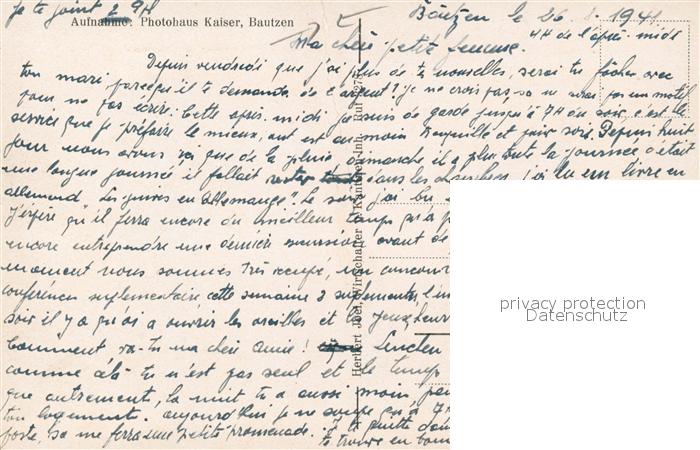 je te joint 2 9H
Aufnahme: Photohaus Kaiser, Bautzen
Bautzen le 26. 8. 1941
4H de l'après-midi
Ma chère petite femme.
Depuis vendredi que j'ai plus de tes nouvelles, serai tu fâcher avec
ton mari parce qu'il te demande de l'argent? je ne crois pas sa ne serai pas un motif
pour ne pas écrire. Cette après-midi je suis de garde jusqu'à 7H du soir, c'est le
service que je préfaire le mieux, on est au moin tranquille et puis sois. Depuis huit
jour nous avons ici que de la pluie, dimanche il a plus toute la journée c'était
une longue journée il fallait rester dans les chambres, j'ai lu un livre en
allemand. Les guires en Allemange. Le soir j'ai bu
J'éspère qu'il ferra encore du meilleur temps qu'a p
encore entreprendre une dernière excursion avant de
moment nous sommes très occupé, un concour
conférence suplementaire cette semaine 3 suplementes, l'un
soir il y a quoi a ouvrir les oreilles et les yeux, heur
Comment va-tu ma chère amie! Lucien
comme cela tu n'est pas seul et le temp
que autrement, la nuit tu a aussi moin peu
ton logement. aujourd'hui je ne soupe qu'a 7H
poste, sa me ferra une petite promenade. Je te quitte dan
te trouve en bonn
Herbert Joel, Wirtschafter u. Kantinen-Inh. Ruf 3275
privacy protection
Datenschutz